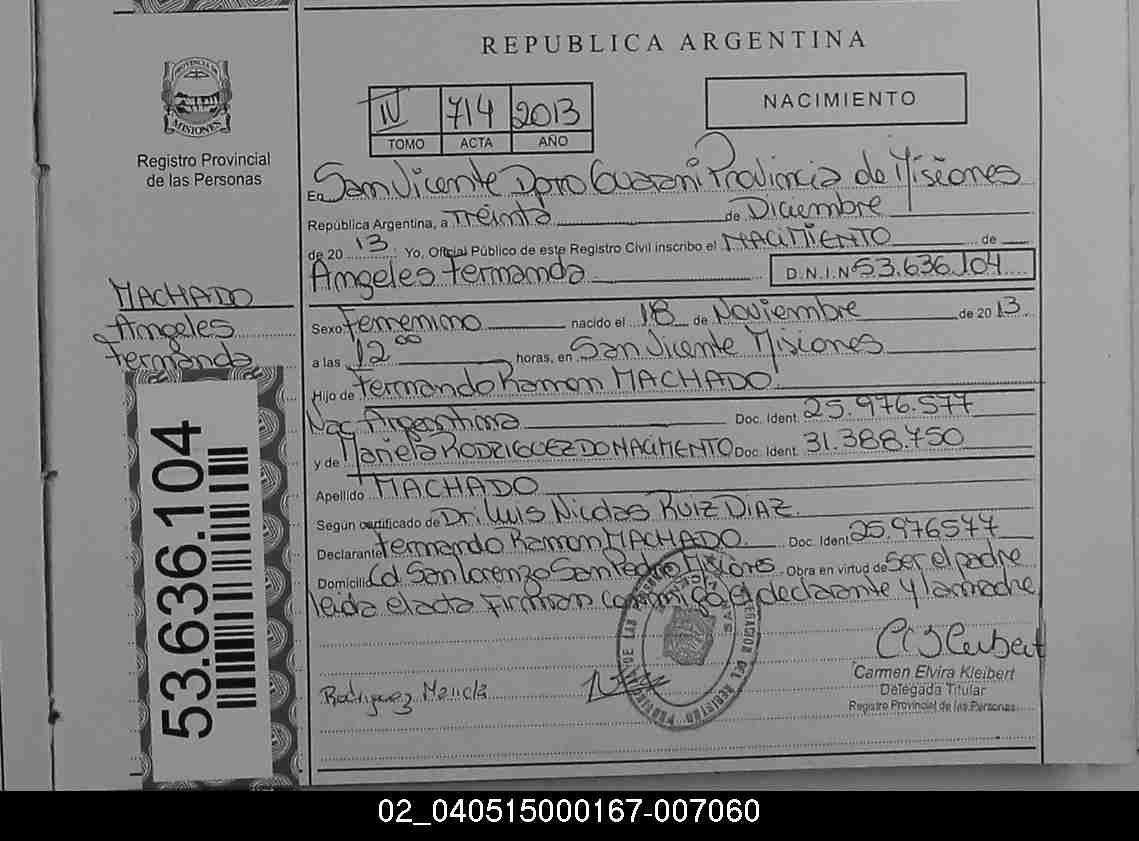 REPUBLICA ARGENTINA
PROVINCIA DE
MISIONES
Registro Provincial
de las Personas
IV 714 2013
TOMO ACTA AÑO
NACIMIENTO
En San Vicente Dpto Guarani Provincia de Misiones
República Argentina, a Treinta de Diciembre
de 20 13. Yo, Oficial Público de este Registro Civil inscribo el NACIMIENTO de
Angeles Fernanda D.N.I.N 53.636.104
MACHADO
Angeles
Fernanda
53.636.104
Sexo Femenino nacido el 18 de Noviembre de 20 13.
a las 12 00 horas, en San Vicente Misiones
Hijo de Fernando Ramon MACHADO
Nac Argentina Doc. Ident. 25.976.577
y de Mariela RODRIGUEZ DO NACIMENTO Doc. Ident. 31.388.750
Apellido MACHADO
Según certificado de Dr. Luis Nicolas RUIZ DIAZ.
Declarante Fernando Ramon MACHADO. Doc. Ident. 25.976577
Domicilio Cd San Lorenzo San Pedro Obra en virtud de Ser el padre
leida el acta Firman conmigo el declarante y la madre
Rodriguez Mariela
Carmen Elvira Kleibert
Delegada Titular
Registro Provincial de las Personas
02_040515000167-007060